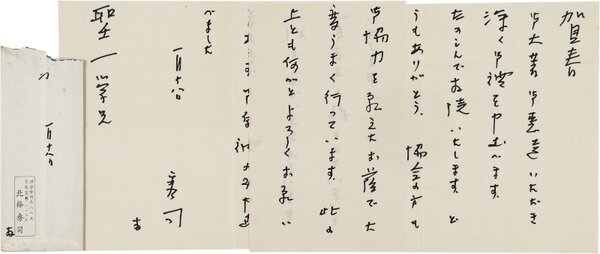 賀春
御大著御恵送いただき
深く御礼申上げます。
たのしんで拝読いたします。ど
うもありがとう。協会の方も
御協力を願えたお蔭で大
変うまく行っています。此の
上とも何かとよろしくお願い
のみ申述
べました
一月十八日
秀司
聖一学兄
〆
一月十八日
北條秀司